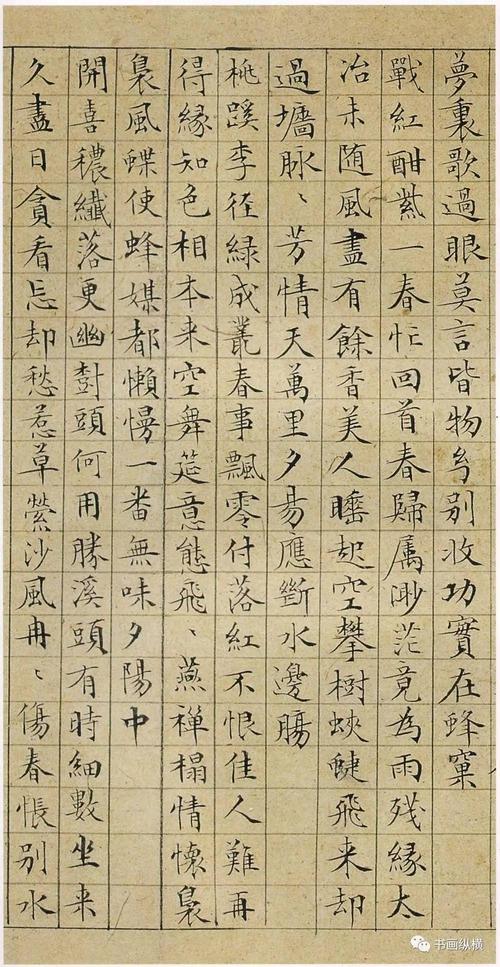 夢裏歌過眼莫言皆物幻別收功實在蜂窠
戰紅酣紫一春忙回首春歸屬渺茫竟為雨殘緣太
冶未随風盡有餘香美人睡起空攀樹蛺蝶飛来却
過墻脉〻芳情天萬里夕昜應斷水邊腸
桃蹊李徑緑成叢春事飄零付落紅不恨佳人難再
得縁知色相本来空舞筵意態飛〻燕禅榻情懷裊
裊風蝶使蜂媒都懶慢一番無味夕陽中
開喜穠纖落更幽樹頭何用勝溪頭有時細數坐来
久盡日貪看忘却愁惹草縈沙風冉〻傷春悵别水
书画纵横